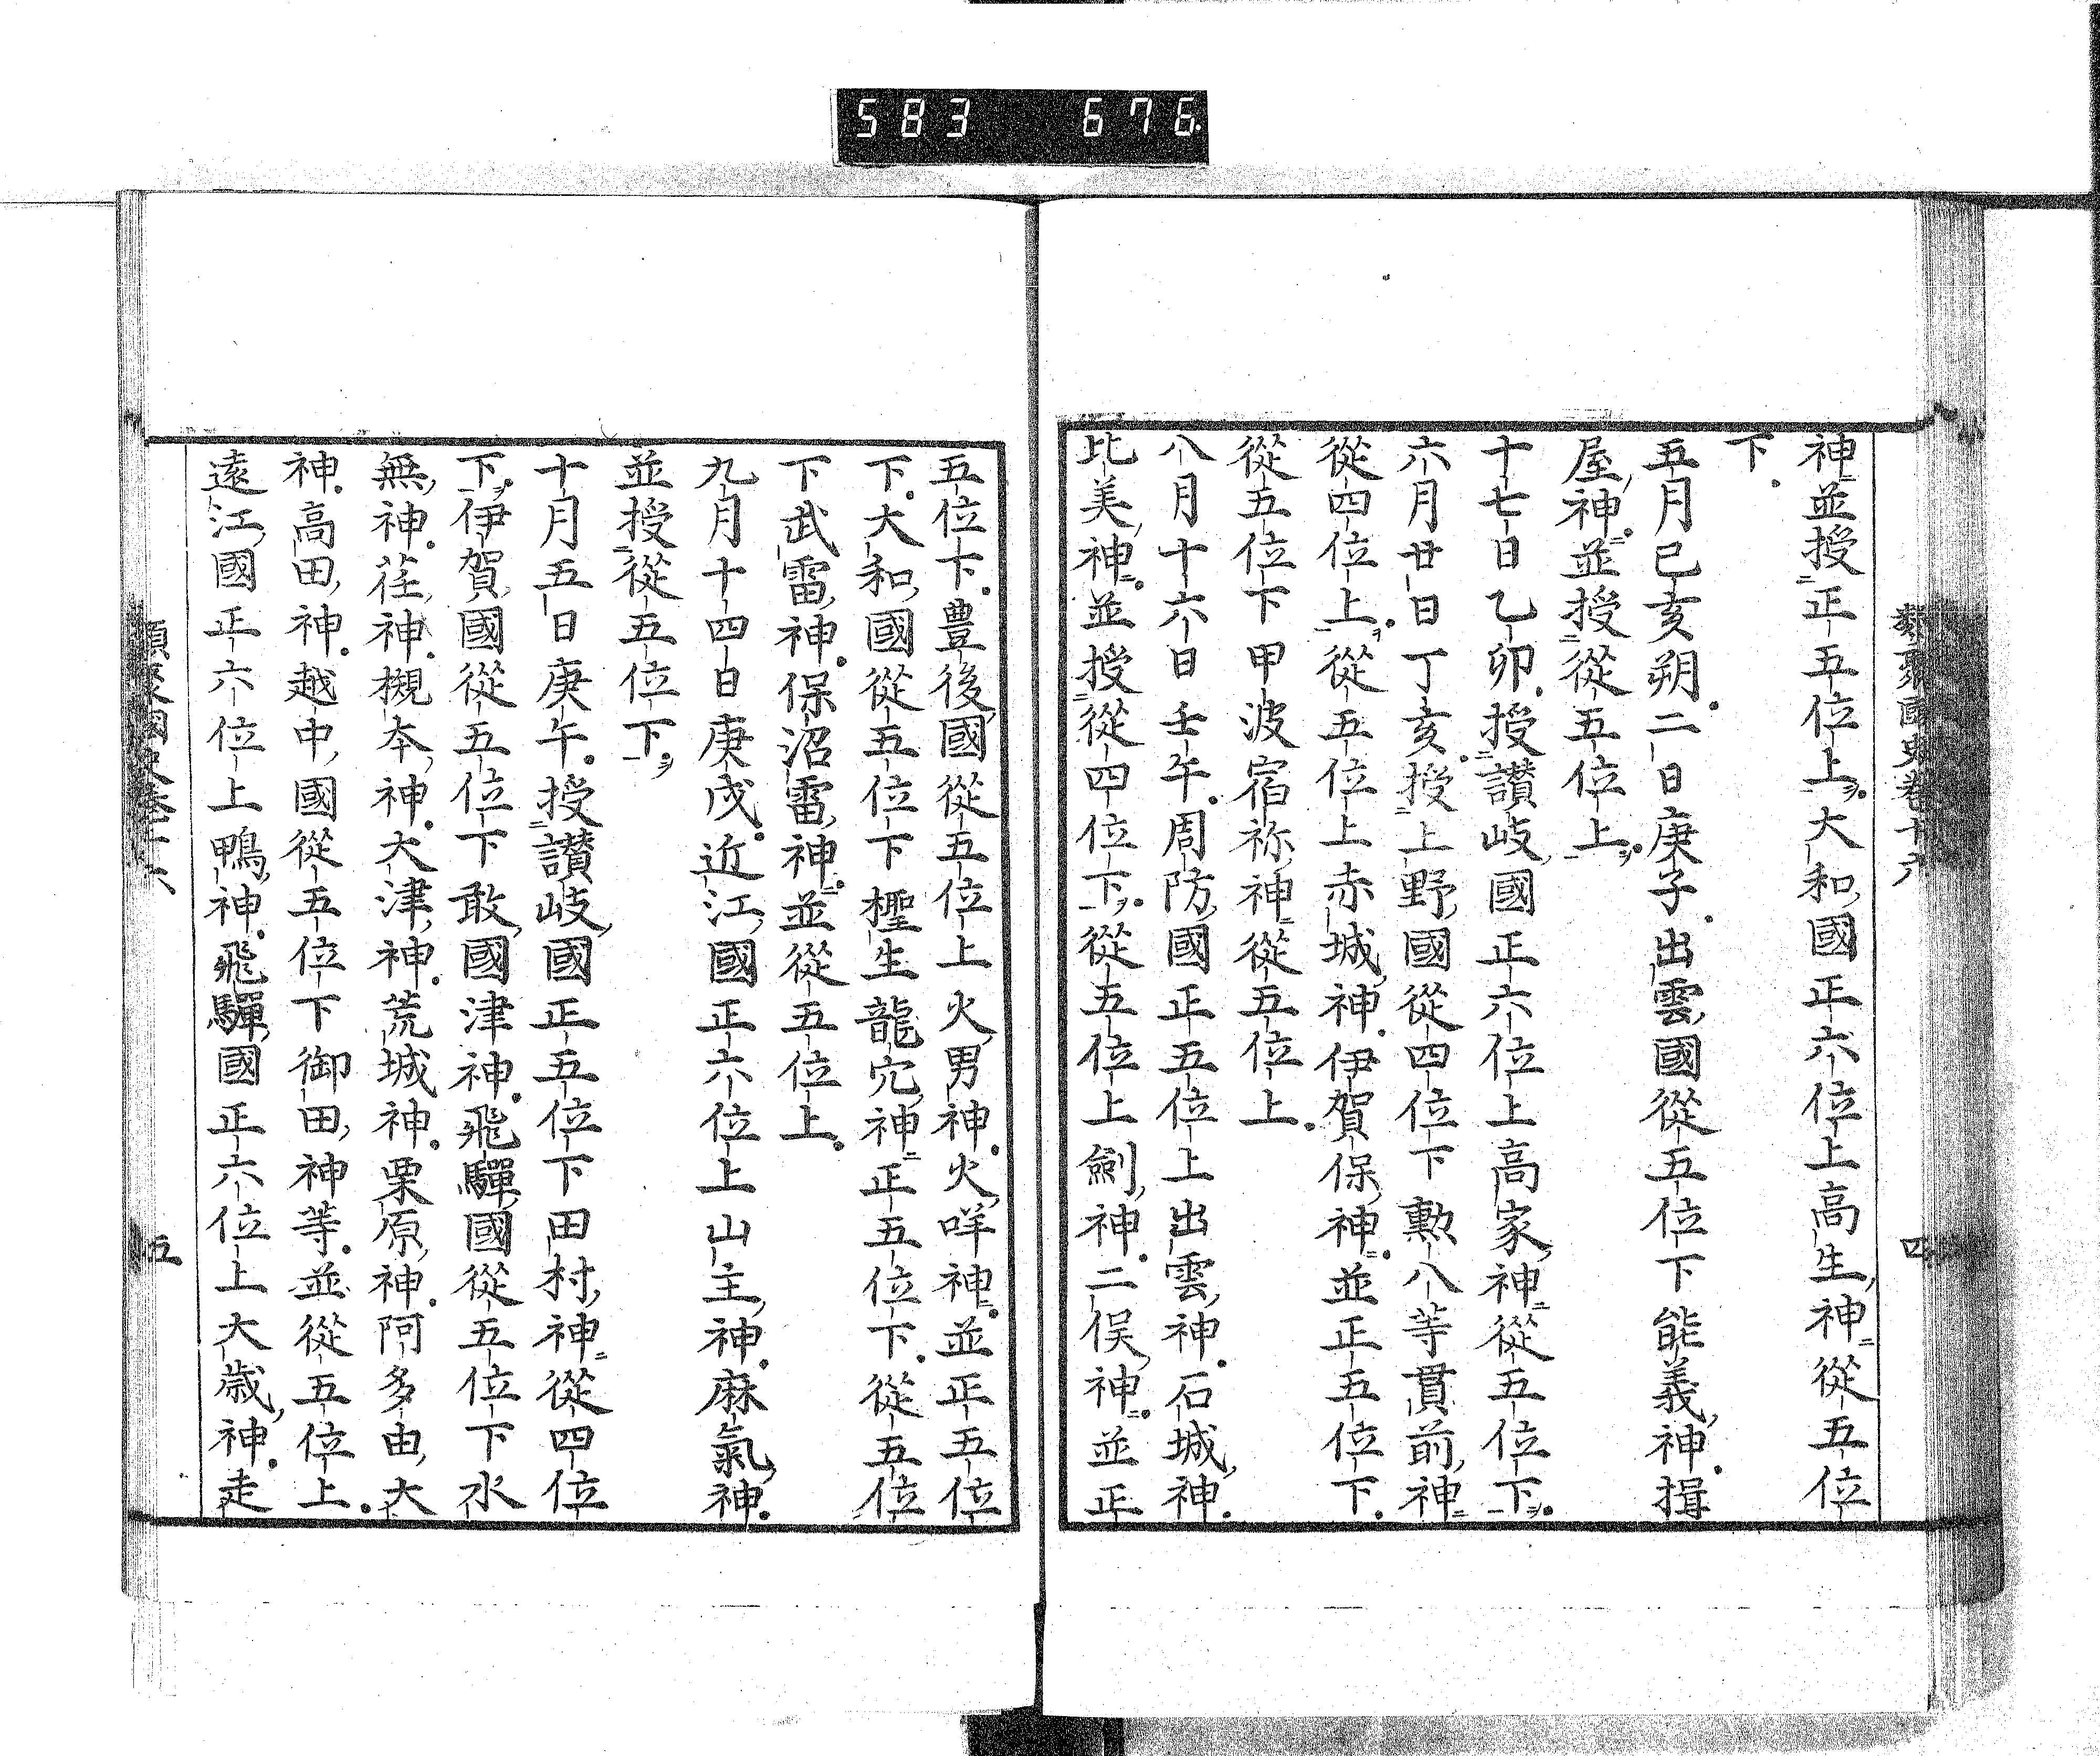 583 676
類聚國史卷十六 四
神並授正五位上大和國正六位上高生神從五位
下
五月己亥朔二日庚子出雲國從五位下能義神揖
屋神並授從五位上
十七日乙卯授讃岐國正六位上高家神從五位下
六月廿日丁亥授上野國從四位下勲八等貫前神
從四位上從五位上赤城神伊賀保神並正五位下
從五位下甲波宿祢神從五位上
八月十六日壬午周防國正五位上出雲神石城神
比美神並授從四位下從五位上劍神二俣神並正
五位下豊後國從五位上火男神火咩神並正五位
下大和國從五位下檉生龍穴神正五位下從五位
下武雷神保沼雷神並從五位上
九月十四日庚戌近江國正六位上山主神麻氣神
並授從五位下
十月五日庚午授讃岐國正五位下田村神從四位
下伊賀國從五位下敢國津神飛驒國從五位下水
無神荏神槻夲神大津神荒城神栗原神阿多由大
神高田神越中國從五位下御田神等並從五位上
遠江國正六位上鴨神飛驒國正六位上大歳神走
類聚國史卷十六 五